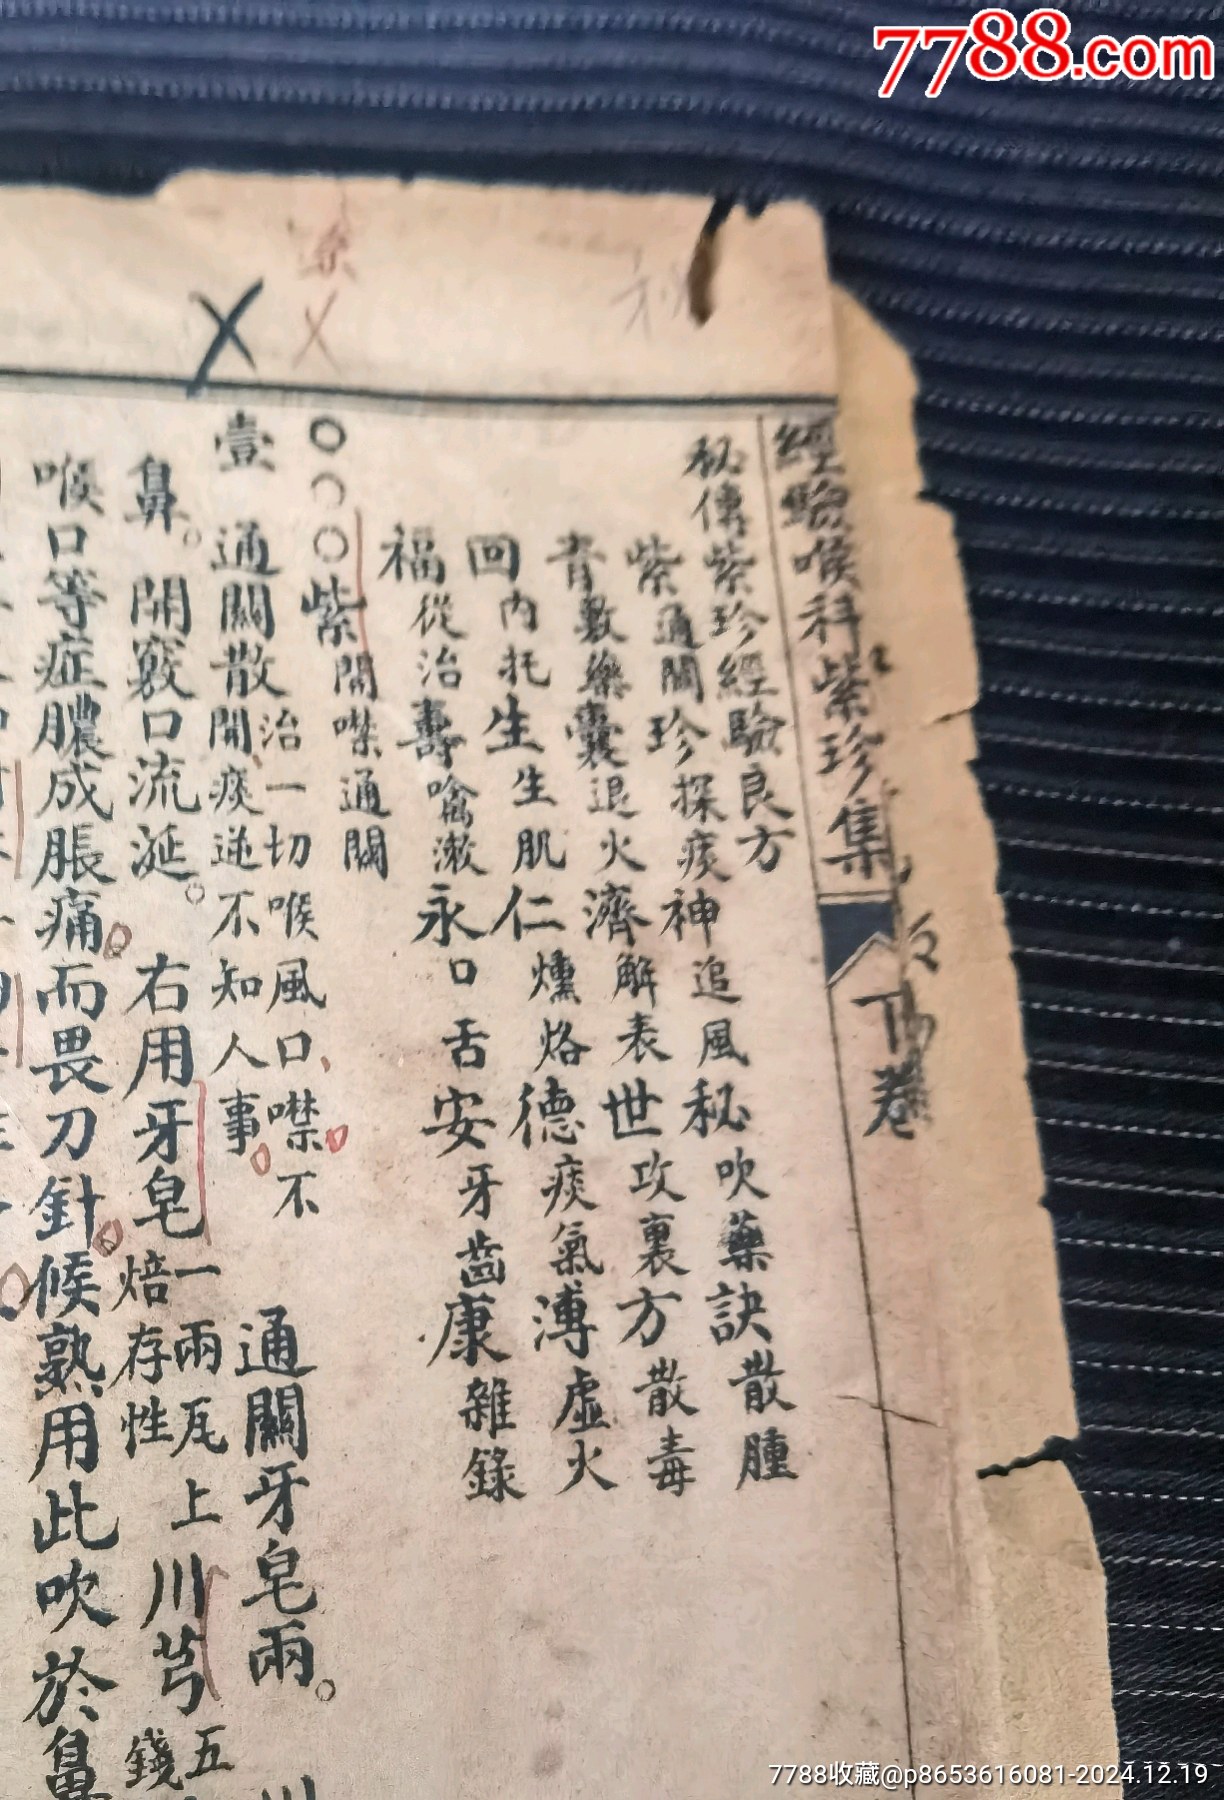 7788.com
經驗喉科紫珍集
下卷
秘傳紫珍經驗良方
紫通關珍探痰神追風秘吹藥訣散腫
青敷藥囊退火濟解表世攻裏方散毒
回內托生生肌仁燻烙德痰氣溥虛火
福從治壽噙漱永口舌安牙齒康雜錄
○○○紫開噤通關
壹 通關散治一切喉風口噤不開痰逆不知人事 通關牙皂兩。
鼻。開竅口流涎。 右用牙皂一兩瓦上焙存性川芎五錢
喉口等症膿成脹痛而畏刀針候熟用此吹於鼻
7788收藏@p8653616081-2024.12.19